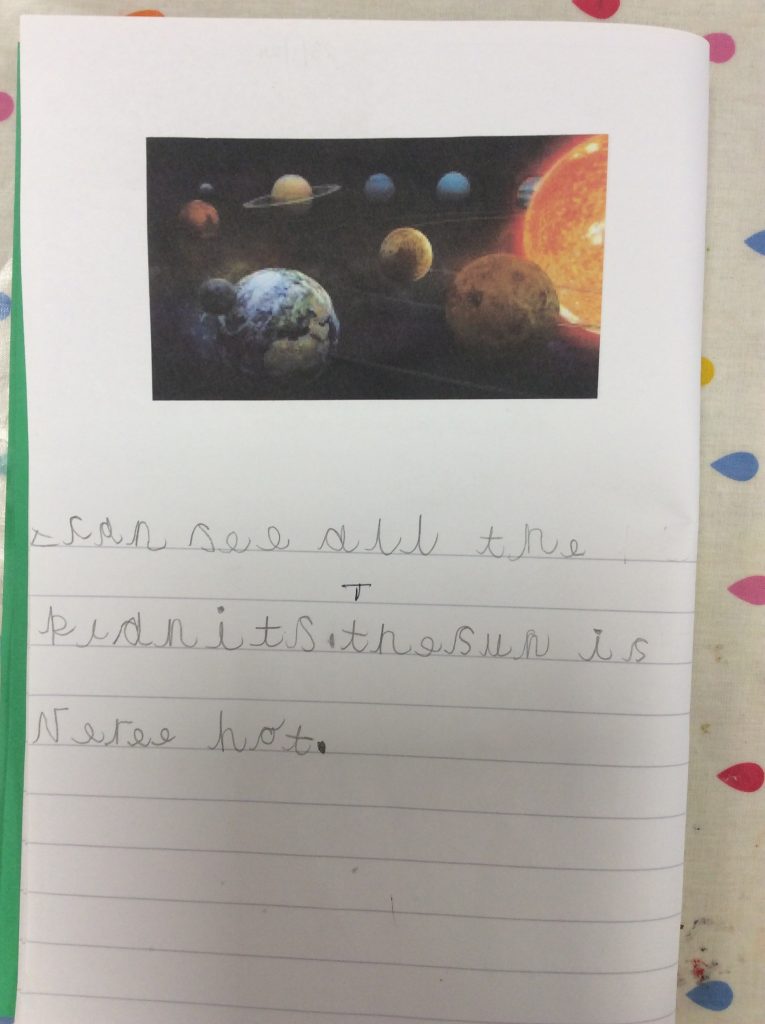 I can see all the
T
planits.the sun is
Veree hot.